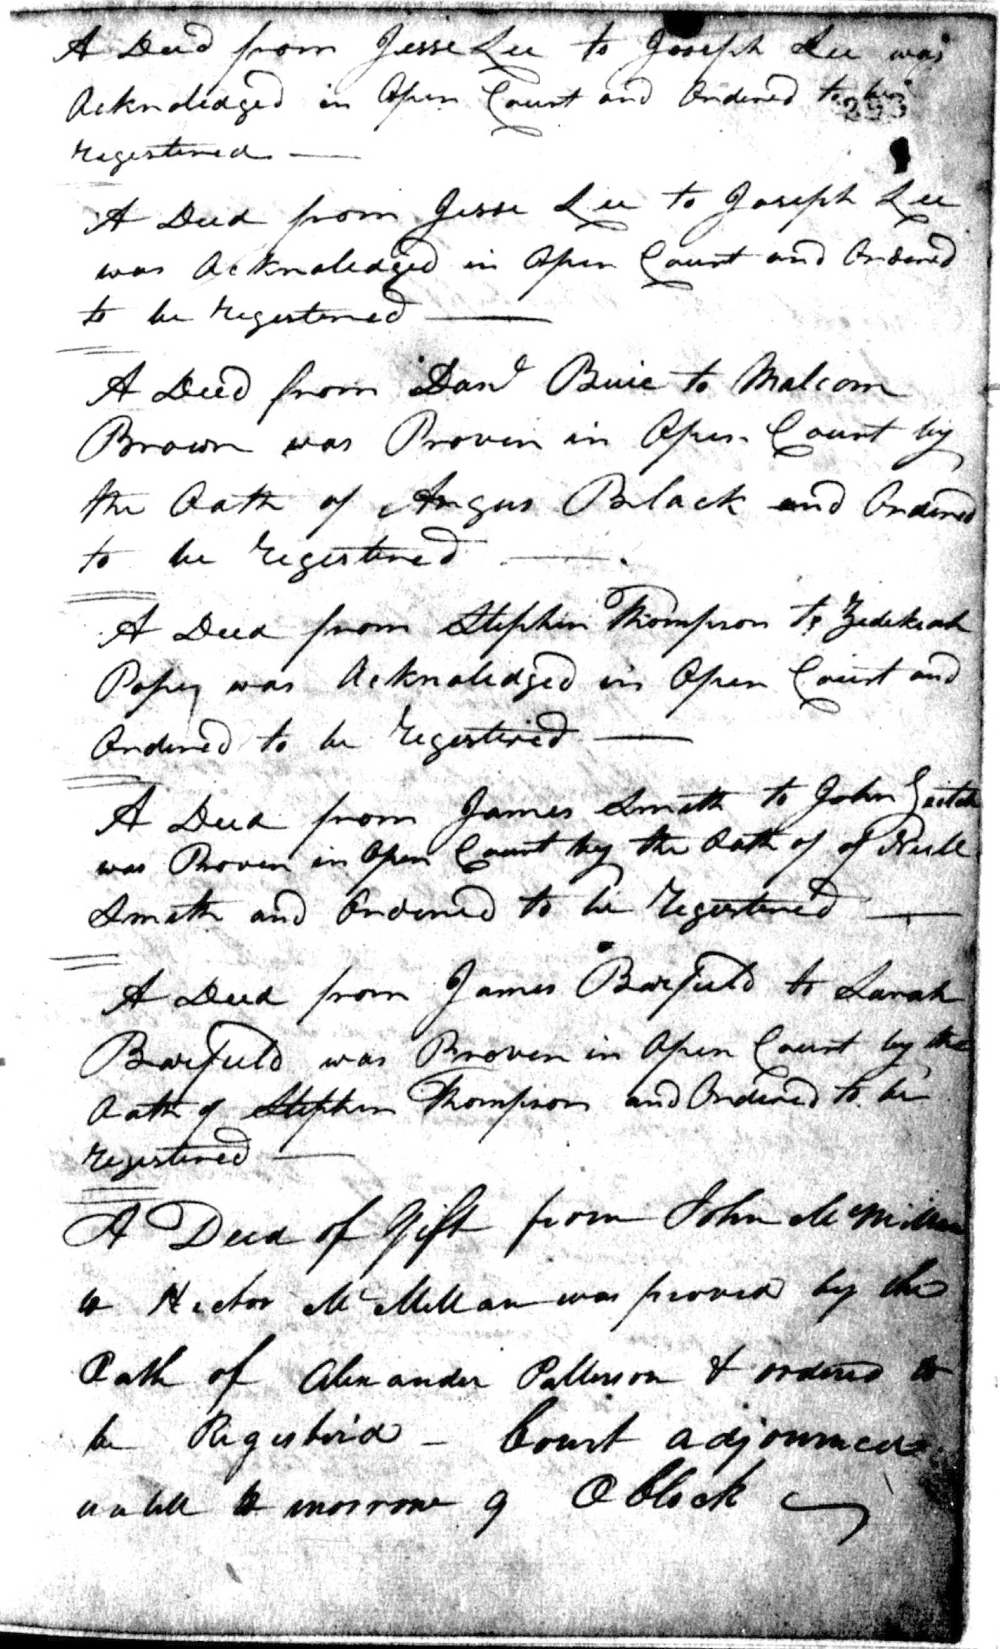 A Deed from Jesse Lee to Joseph Lee was
Acknoledged in Open Court and Ordered to be
293
registered —
A Deed from Jesse Lee to Joseph Lee
was Acknoledged in Open Court and Ordered
to be registered —
A Deed from Danl Buie to Malcom
Brown was Proven in Open Court by
the Oath of Angus Black and Ordered
to be registered —
A Deed from Stephen Thompson to Zedekiah
Popey was Acknoledged in Open Court and
Ordered to be registered —
A Deed from James Smith to John
was Proven in Open Court by the Oath of of Neill
Smith and Ordered to be registered —
A Deed from James Barfield to Sarah
Barfield was Proven in Open Court by the
Oath of Stephen Thompson and Ordered to be
registered —
A Deed of Gift from John McMillan
to Hector McMillan was proved by the
Oath of Alexander Patterson & ordered to
be Registerd — Court adjourned
untill to morrow 9 OClock